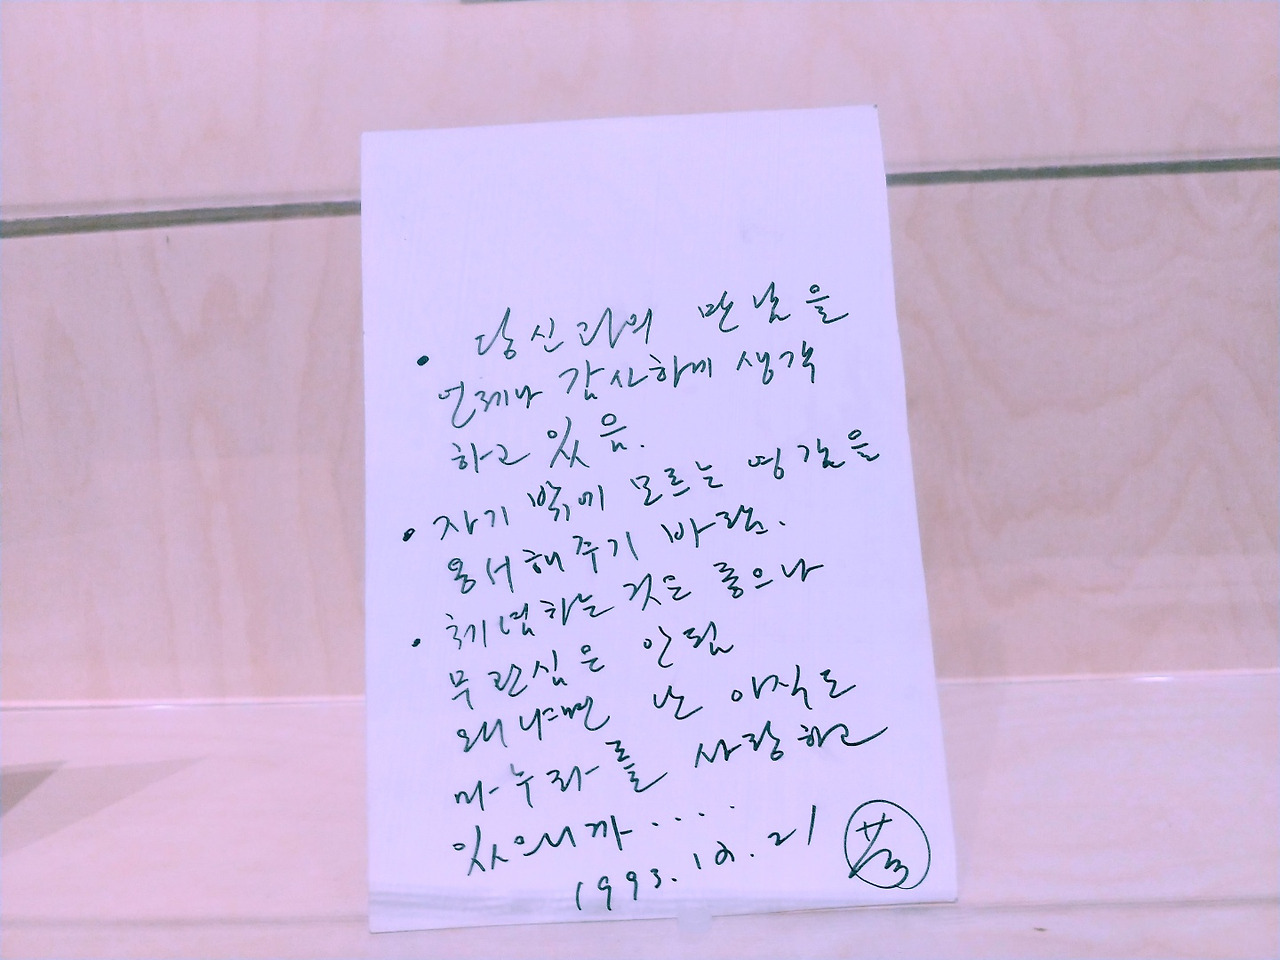 • 당신과의 만남을
언제나 감사하며 생각
하고 있음.
• 자기 밖에 모르는 영감을
용서해주기 바람.
• 체념하는 것은 좋으나
무관심은 안됨
왜냐면 난 아직도
마누라를 사랑하고
있으니까....
1993.12.21